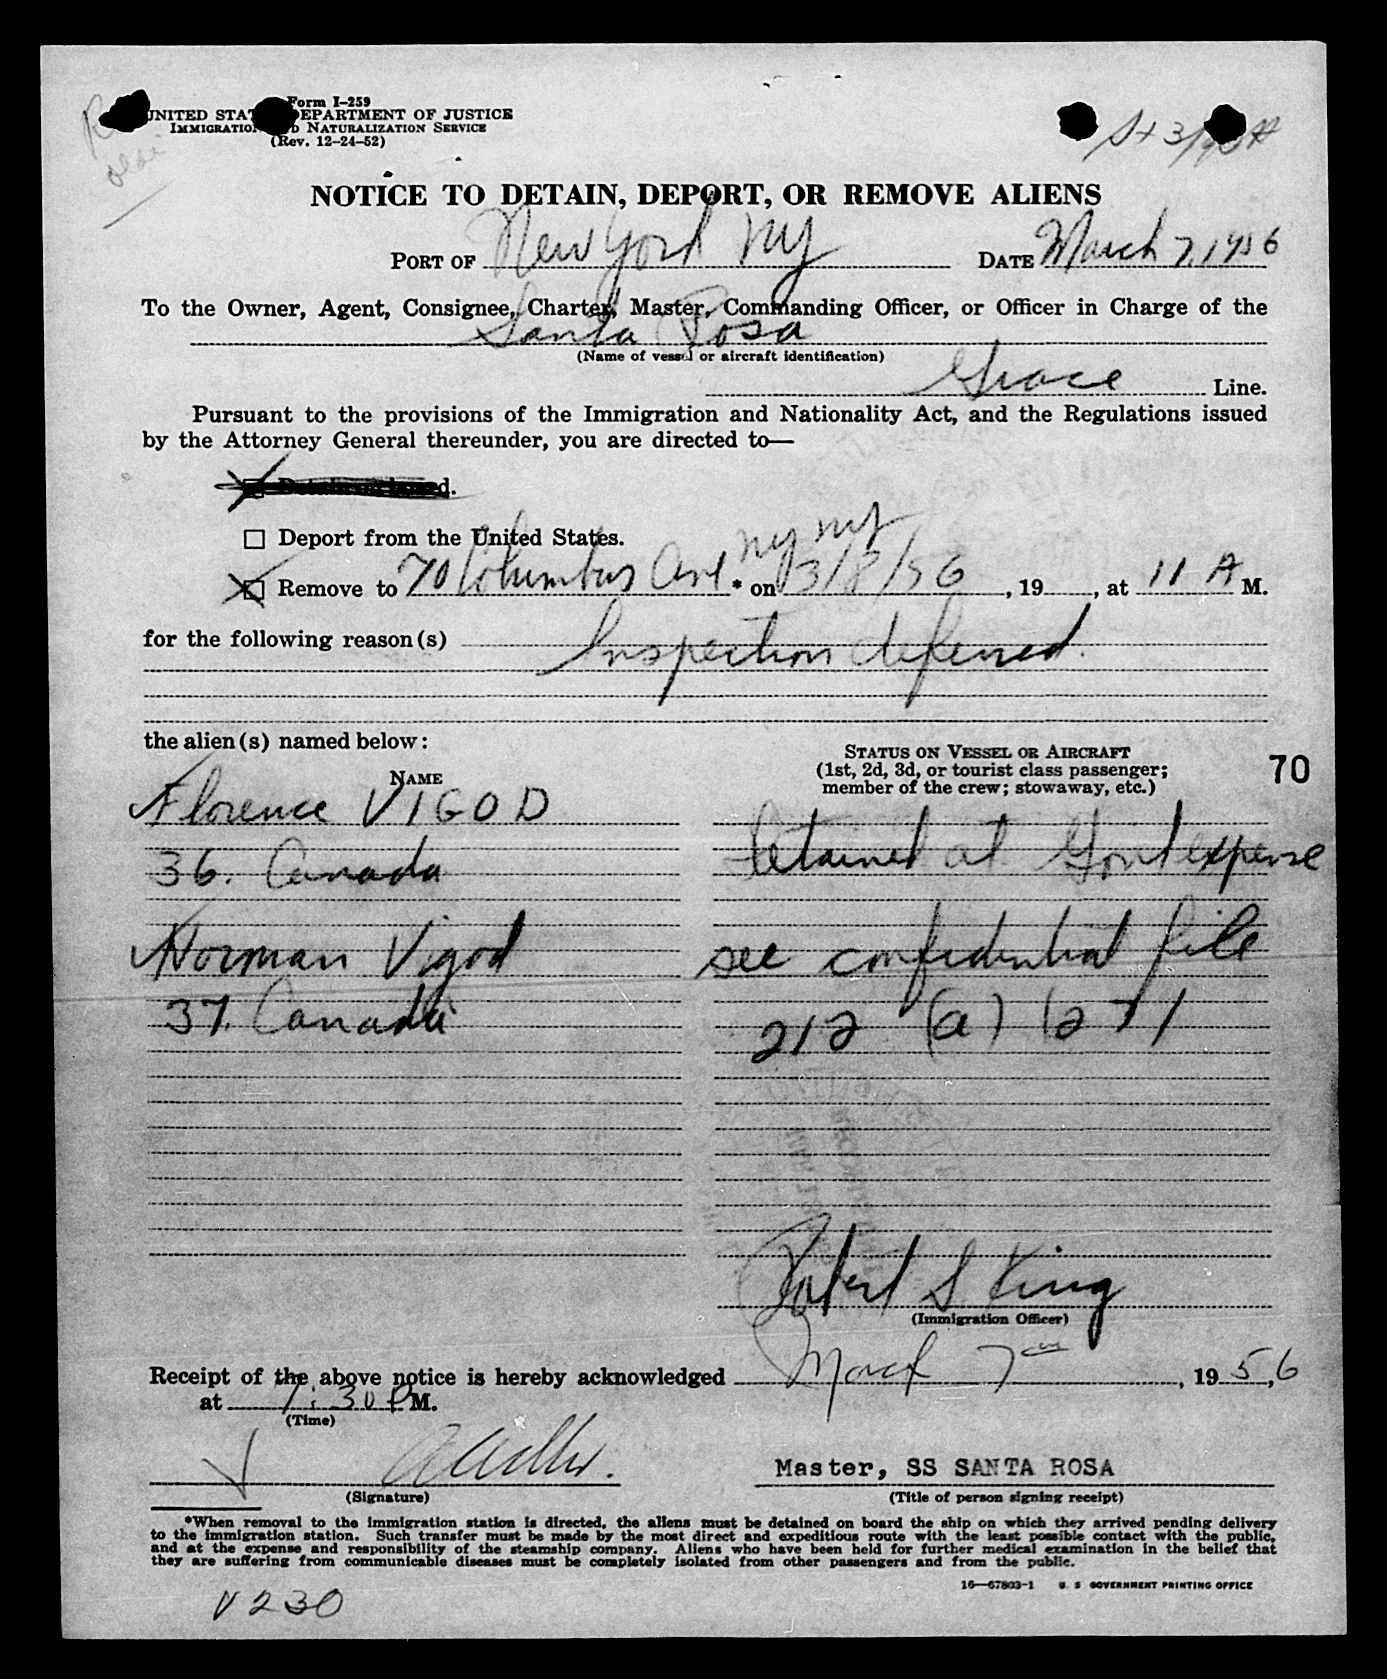 Form I-259
UNITED STATES DEPARTMENT OF JUSTICE
IMMIGRATION AND NATURALIZATION SERVICE
(Rev. 12-24-52)
NOTICE TO DETAIN, DEPORT, OR REMOVE ALIENS
PORT OF New York NY DATE March 7, 1956
To the Owner, Agent, Consignee, Charter, Master, Commanding Officer, or Officer in Charge of the
Santa Rosa
(Name of vessel or aircraft identification)
Grace Line.
Pursuant to the provisions of the Immigration and Nationality Act, and the Regulations issued
by the Attorney General thereunder, you are directed to—
Detain on board.
Deport from the United States.
NY NY
Remove to 70 Columbus Ave * on 3/8/56, 19 , at 11 A M.
for the following reason(s) Inspection deferred.
the alien(s) named below:
NAME
STATUS ON VESSEL OR AIRCRAFT
(1st, 2d, 3d, or tourist class passenger;
member of the crew; stowaway, etc.)
70
Florence VIGOD
36. Canada
Detained at Govt expense
Norman Vigod
see confidential file
37. Canada
212 (a) (27)
Robert S King
(Immigration Officer)
Receipt of the above notice is hereby acknowledged March 7, 1956
at 1:30 P M.
(Time)
(Signature)
Master, SS SANTA ROSA
(Title of person signing receipt)
*When removal to the immigration station is directed, the aliens must be detained on board the ship on which they arrived pending delivery
to the immigration station. Such transfer must be made by the most direct and expeditious route with the least possible contact with the public,
and at the expense and responsibility of the steamship company. Aliens who have been held for further medical examination in the belief that
they are suffering from communicable diseases must be completely isolated from other passengers and from the public.
16—67803-1 U. S. GOVERNMENT PRINTING OFFICE
V230